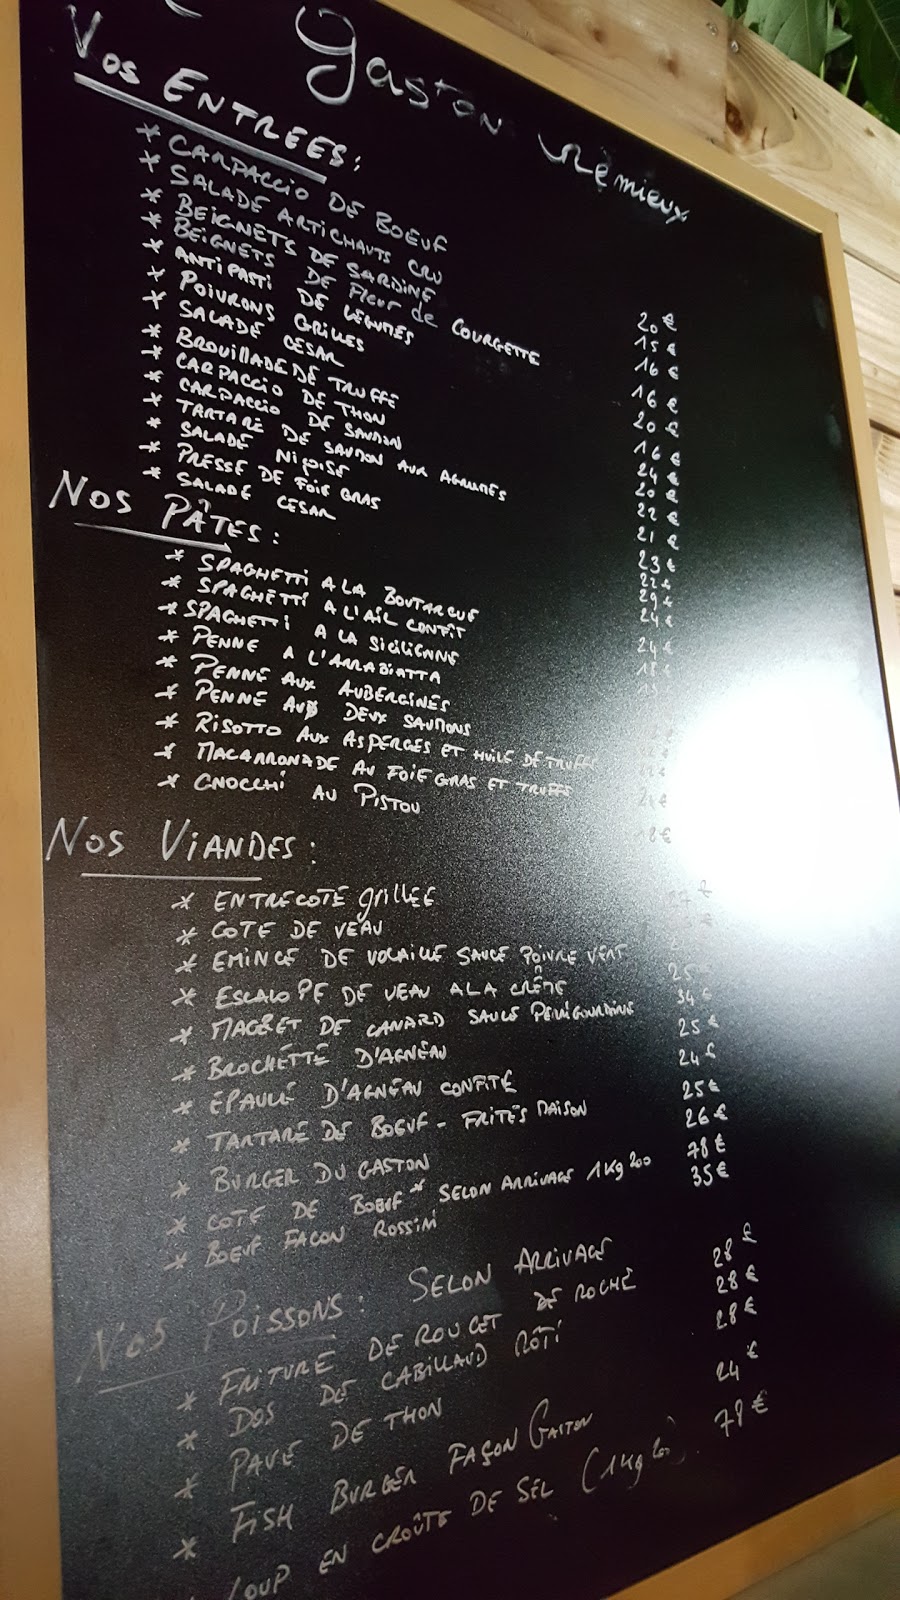 Gaston
Vos ENTREES:
* CARPACCIO DE BOEUF 20 €
* SALADE ARTICHAUTS CRU 15 €
* BEIGNETS DE SARDINE 16 €
* BEIGNETS DE Fleur de COURGETTE 16 €
* ANTIPASTI DE LEGUMES 20 €
* POIVRONS GRILLES 16 €
* SALADE CESAR 24 €
* BROUILLADE DE TRUFFE 20 €
* CARPACCIO DE THON 22 €
* CARPACCIO DE SAUMON 21 €
* TARTARE DE SAUMON AUX AGRUMES 23 €
* SALADE NIÇOISE 22 €
* PRESSE DE FOIE GRAS 29 €
* SALADE CESAR 24 €
NOS PÂTES:
* SPAGHETTI A LA BOUTARGUE 24 €
* SPAGHETTI A L'AIL CONFIT 18 €
* SPAGHETTI A LA SICILIENNE
* PENNE A L'ARRABIATTA
* PENNE AUX AUBERGINES
* PENNE AUX DEUX SAUMONS
* RISOTTO AUX ASPERGES ET HUILE DE TRUFFES
* MACARRONADE AU FOIE GRAS ET TRUFFES
* GNOCCHI AU PISTOU 18 €
NOS VIANDES:
* ENTRECOTE grillEE €
* COTE DE VEAU €
* EMINCE DE VOLAILLE SAUCE POIVRE VERT
* ESCALOPE DE VEAU A LA CRÊME 25 €
* MAGRET DE CANARD SAUCE PERIGOURDINE 34 €
* BROCHETTE D'AGNEAU 25 €
* EPAULE D'AGNEAU CONFITE 24 €
* TARTARE DE BOEUF - FRITES MAISON 25 €
* BURGER DU GASTON 26 €
* COTE DE BOEUF * SELON ARRIVAGE 1Kg200 78 €
* BOEUF FAÇON ROSSINI 35 €
NOS POISSONS: SELON ARRIVAGE
* FRITURE DE ROUGET DE ROCHE 28 €
* DOS DE CABILLAUD RÔTI 28 €
* PAVE DE THON 28 €
* FISH BURGER FAÇON GASTON 24 €
* LOUP EN CROÛTE DE SEL (1Kg200) 78 €